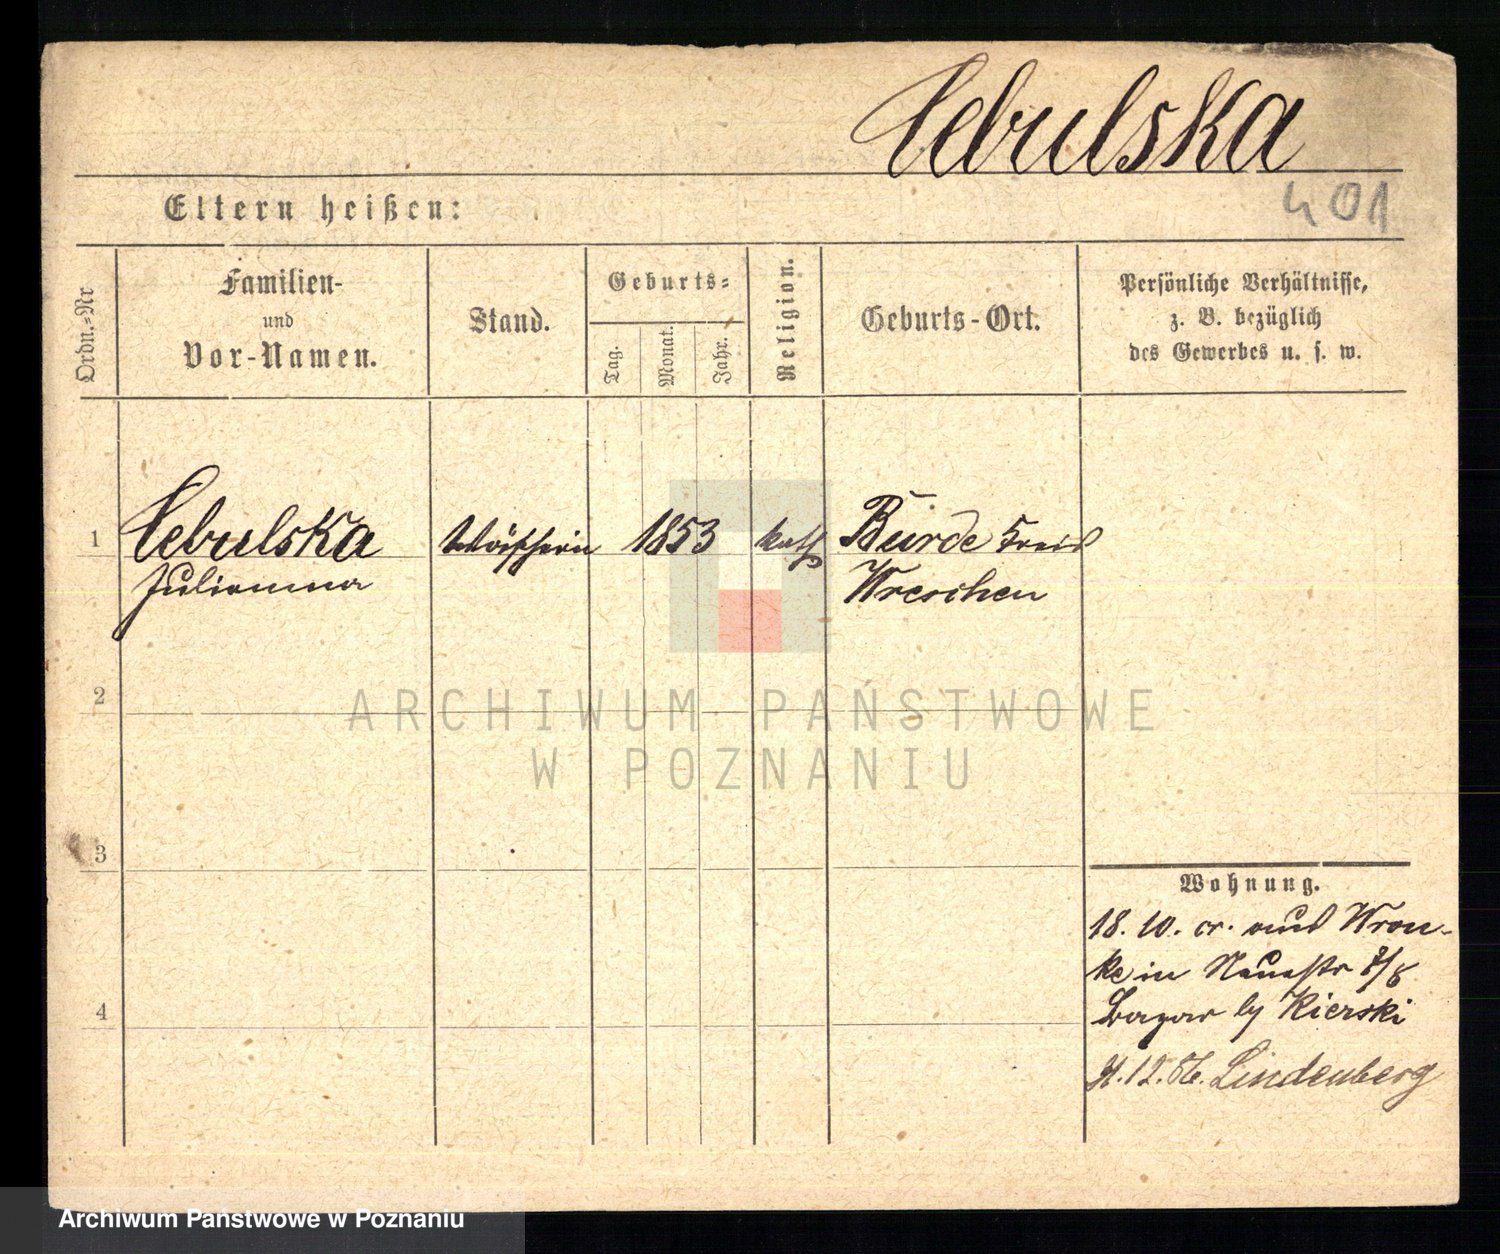 Cebulska
401
Eltern heißen:
Ordn.-Nr
Familien-
und
Vor-Namen.
Stand.
Geburts-
Tag.
Monat.
Jahr.
Religion.
Geburts-Ort.
Persönliche Verhältnisse,
z. B. bezüglich
des Gewerbes u. s. w.
1
Cebulska
Julianna
Wäscherin
1853
kath
Bürde Kreis
Wreschen
2
ARCHIWUM PAŃSTWOWE
W POZNANIU
3
Wohnung.
18. 10. cr. aus Wron-
ke in Neuestr 7/8
Lazar by Kierski
12. 86. Lindenberg
4
Archiwum Państwowe w Poznaniu